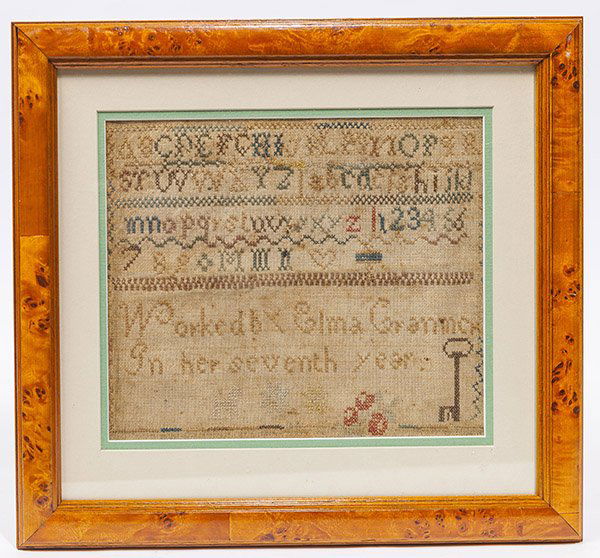 ABCDEFGHI K L M N O P Q R
S T U V W X Y Z a b c d e f g h i j k l
m n o p q r s t u v w x y z 1 2 3 4 5 6
7 8 9
Worked by Elma
In her seventh year